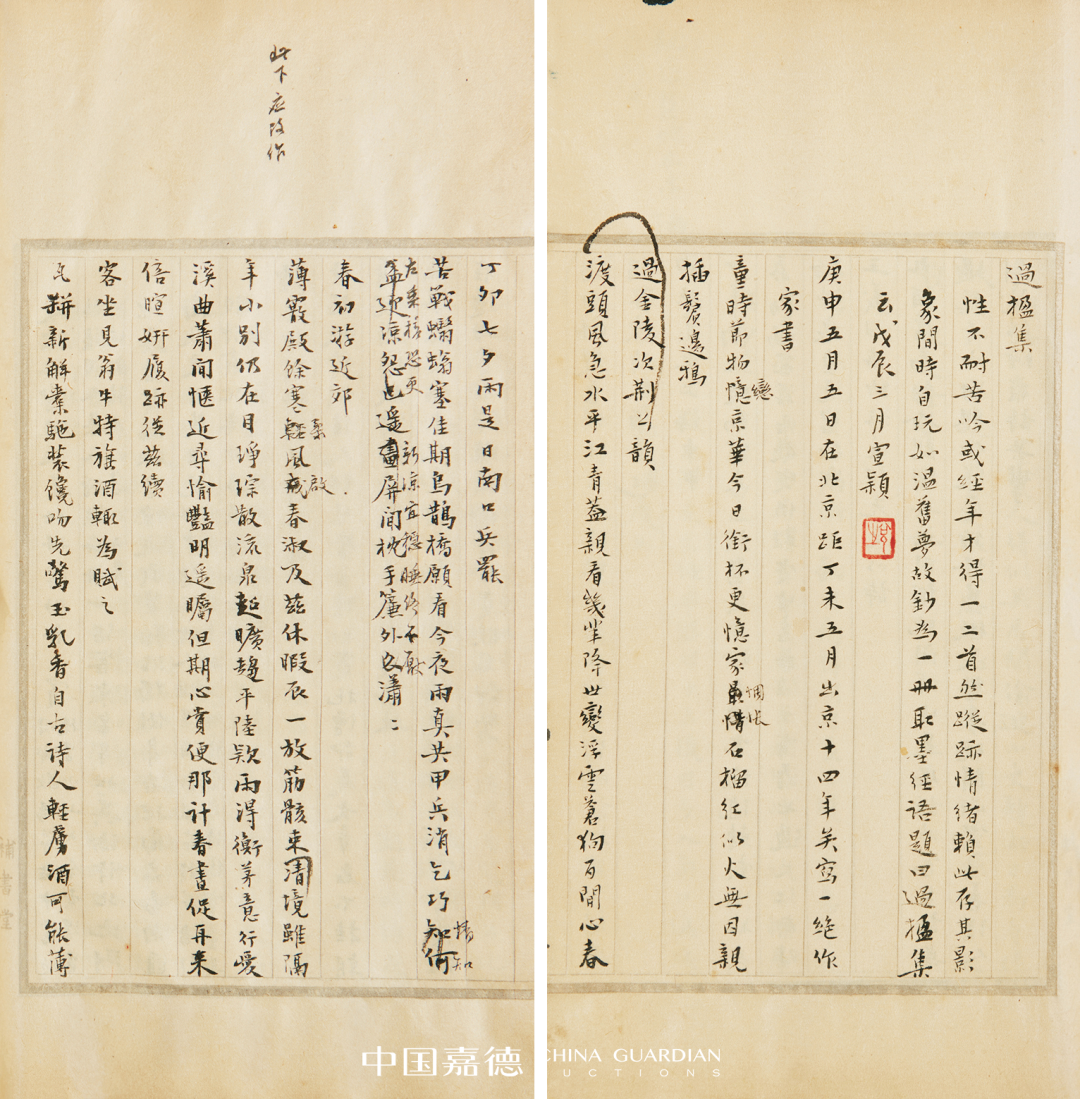 過搵集
性不耐苦吟或經年才得一二首然蹤跡情緒賴此存其影
象閒時自玩如溫舊夢故鈔為一冊取墨經語題曰過搵集
云戊辰三月宣穎
庚申五月五日在北京距丁未五月出京十四年矣寫一絕作
家書
童時節物憶京華今日銜杯更憶家最惜石榴紅似火無因親
戀
惆悵
插鬢邊鴉
過金陵次荊公韻
渡頭風急水平江青蓋親看幾輩降世變浮雲蒼狗百閒心春
此下應改作
丁卯七夕雨是日南口兵罷
苦戰蠮螉塞佳期烏鵲橋願看今夜雨真共甲兵消乞巧知何
情知
新涼宜穩睡終不厭
益遊涼怨已遙畫屏閒枕手簾外任瀟二
春初游近郊
薄霰殿餘寒輕風戒春淑及茲休暇辰一放筋骸束清境雖隔
啟
年小別仍在目琤琮散流泉超曠趨平陸欵雨得衡茅意行愛
溪曲蕭閒愜近尋愉豔明遥矚但期心賞便那計春晝促再來
倍暄妍履跡從茲續
客坐見翁牛特旗酒輒為賦之
瓦缾新解橐駞裝饞吻先驚玉乳香自古詩人輕虜酒可能薄
中国嘉德
CHINA GUARDIAN
AUCTIONS